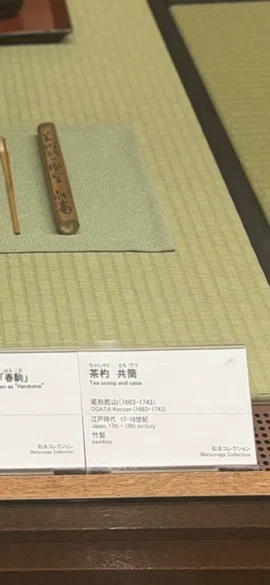 はるこま
「春駒」
en as "Harukoma"
松永コレクション
Matsunaga Collection
ちゃしゃく ともづつ
茶杓 共筒
Tea scoop and case
尾形乾山(1663-1743)
OGATA Kenzan (1663-1743)
江戸時代 17-18世紀
Japan, 17th - 18th century
竹製
bamboo
松永コレクション
Matsunaga Collection